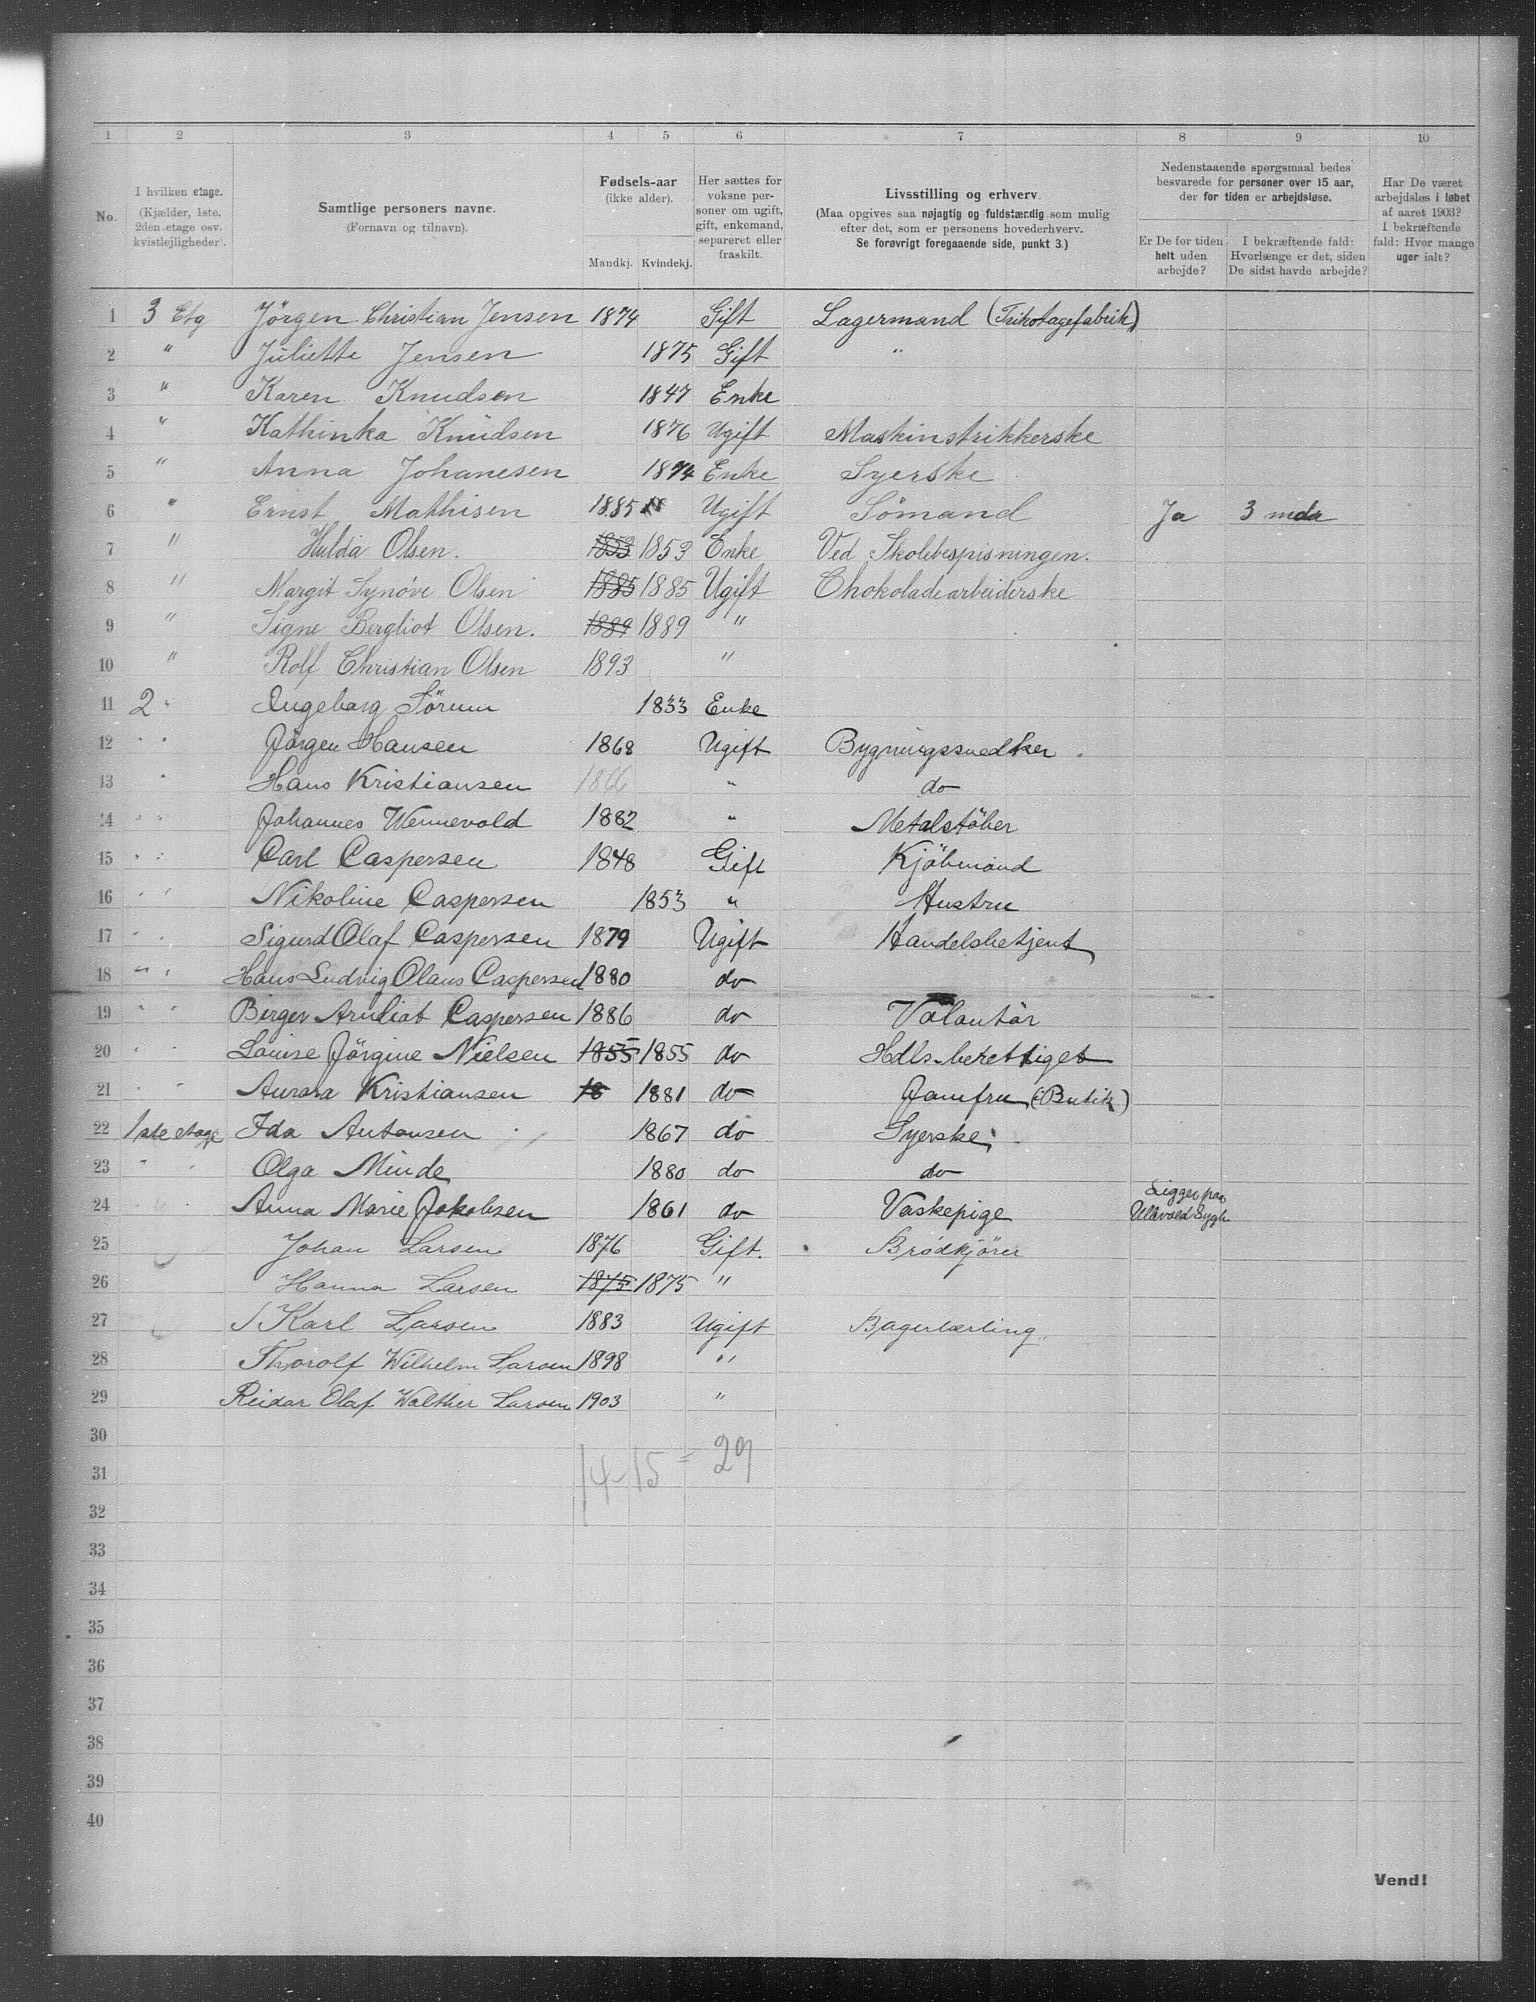 1 2 3 4 5 6 7 8 9 10
No.
I hvilken etage.
(Kjælder, 1ste, 2den etage osv. kvistlejligheder).
Samtlige personers navne.
(Fornavn og tilnavn).
Fødsels-aar
(ikke alder).
Mandkj. Kvindekj.
Her sættes for voksne personer om ugift, gift, enkemand, separeret eller fraskilt.
Livsstilling og erhverv.
(Maa opgives saa nøjagtig og fuldstændig som mulig efter det, som er personens hovederhverv.
Se forøvrigt foregaaende side, punkt 3.)
Nedenstaaende spørgsmaal bedes besvarede for personer over 15 aar, der for tiden er arbejdsløse.
Er De for tiden helt uden arbejde?
I bekræftende fald: Hvorlænge er det, siden De sidst havde arbejde?
Har De været arbejdsløs i løbet af aaret 1903? I bekræftende fald: Hvor mange uger ialt?
1 3 Etg Jörgen Christian Jensen 1874 Gift Lagermand (Trikotagefabrik)
2 " Juliette Jensen 1875 Gift "
3 " Karen Knudsen 1847 Enke
4 " Kathinka Knudsen 1876 Ugift Maskinstrikkerske
5 " Anna Johanesen 1874 Enke Syerske
6 " Ernst Mathisen 1885 Ugift Sömand Ja 3 mdr
7 " Hulda Olsen. 1853 1853 Enke Ved Skolebespisningen.
8 " Margit Synöve Olsen 1885 1885 Ugift Chokoladearbeiderske
9 " Signe Bergliot Olsen. 1889 1889 "
10 " Rolf Christian Olsen 1893 "
11 2 " Ingeborg Sörum 1833 Enke
12 " " Jörgen Hansen 1868 Ugift Bygningssnedker
13 " Hans Kristiansen 1866 " do
14 " " Johannes Wennevold 1882 " Metalstöber
15 " " Carl Caspersen 1848 Gift Kjöbmand
16 " " Nikoline Caspersen 1853 " Hustru
17 " " Sigurd Olaf Caspersen 1879 Ugift Handelsbetjent
18 " " Hans Ludvig Olaus Caspersen 1880 do
19 " " Birger Arnliot Caspersen 1886 do Volontör
20 " " Louise Jörgine Nielsen 1855 1855 do Hdls-berettiget
21 " " Aurora Kristiansen 18 1881 do Jomfru (Butik)
22 1ste etage Ida Antonsen 1867 do Syerske
23 " " Olga Minde 1880 do do
24 " " Anna Marie Jakobsen 1861 do Vaskepige Ligger paa Ullevold Sygh
25 Johan Larsen 1876 Gift. Brödkjörer
26 Hanna Larsen 1875 1875 "
27 Karl Larsen 1883 Ugift Bagerlærling
28 Thorolf Wilhelm Larsen 1898 "
29 Reidar Olaf Walther Larsen 1903 "
30
31 14-15 = 29
32
33
34
35
36
37
38
39
40
Vend!